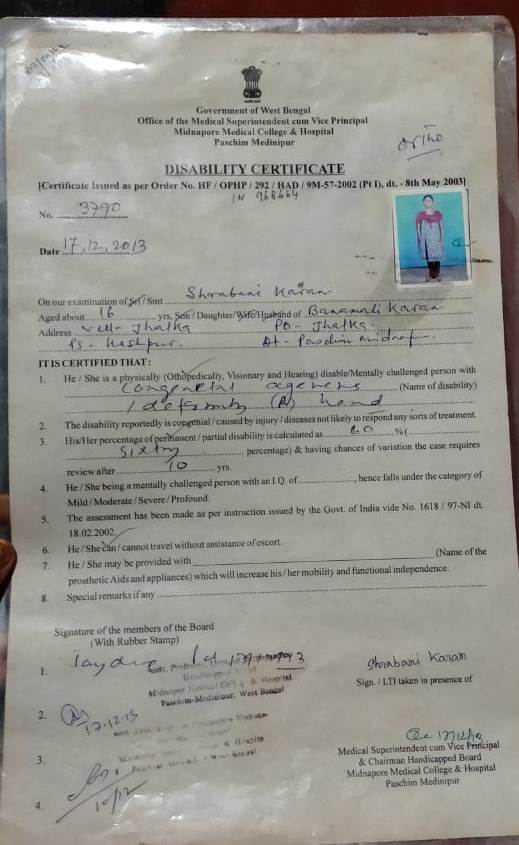 Government of West Bengal
Office of the Medical Superintendent cum Vice Principal
Midnapore Medical College & Hospital
Paschim Medinipur
ortho
DISABILITY CERTIFICATE
[Certificate Issued as per Order No. HF / OPHP / 292 / HAD / 9M-57-2002 (Pt I), dt. - 8th May 2003]
IN 968664
No. 3790
Date 17.12.2013
On our examination of Sri / Smt Shrabani Karan
Aged about 16 yrs. Son / Daughter/Wife/Husband of Banamali Karan
Address Vill - Jhalka PO - Jhalka.
PS - Keshpur. Dt - Paschim
IT IS CERTIFIED THAT :
1. He / She is a physically (Othopedically, Visionary and Hearing) disable/Mentally challenged person with
(Name of disability)
deformity (R) hand
2. The disability reportedly is congenial / caused by injury / diseases not likely to respond any sorts of treatment.
3. His/Her percentage of permanent / partial disability is calculated as 60 %(
Sixty percentage) & having chances of variation the case requires
review after 10 yrs.
4. He / She being a mentally challenged person with an I.Q. of , hence falls under the category of
Mild / Moderate / Severe / Profound.
5. The assessment has been made as per instruction issued by the Govt. of India vide No. 1618 / 97-NI dt.
18.02.2002.
6. He / She can / cannot travel without assistance of escort.
7. He / She may be provided with (Name of the
prosthetic Aids and appliances) which will increase his / her mobility and functional independence.
8. Special remarks if any
Signature of the members of the Board
(With Rubber Stamp)
1.
Midnapore Medical College & Hospital
Paschim-Medinipur, West Bengal
2. 17-12-13
3.
4.
Shrabani Karan
Sign. / LTI taken in presence of
Medical Superintendent cum Vice Principal
& Chairman Handicapped Board
Midnapore Medical College & Hospital
Paschim Medinipur